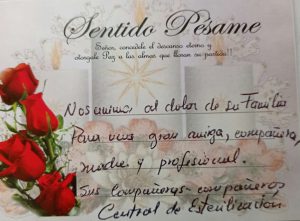 Sentido Pésame
Señor, concédele el descanso eterno y
otórgale Paz a las almas que lloran su partida!
Nos unimos al dolor de su Familia
Para una gran amiga, compañera,
madre y profesional.
Sus compañeras - compañeros
Central de Esterilización